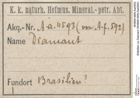 K. k. naturh. Hofmus. Mineral.-petr. Abt.
Akq.-Nr. A.a. 4593 (von A.f. 592)
Name Diamant
Fundort Brasilien?